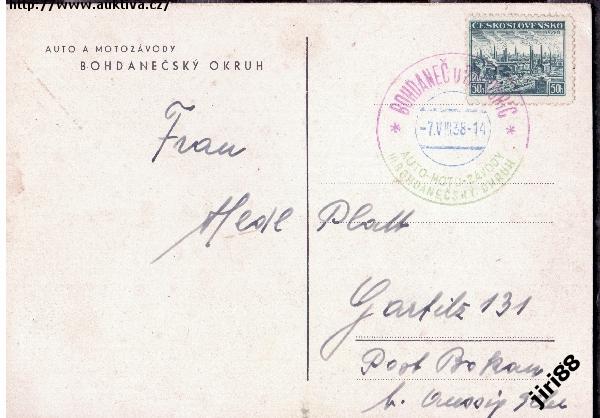 http://www.auktiva.cz/
AUTO A MOTOZÁVODY
BOHDANEČSKÝ OKRUH
ČESKOSLOVENSKO
50h 50h
* BOHDANEČ U *
-7.VIII38-14
AUTO-MOTO-ZÁVODY
BOHDANEČSKÝ OKRUH
Frau
Hedl Platt
Gartitz 131
Post Bokau
b. Aussig
jiri88